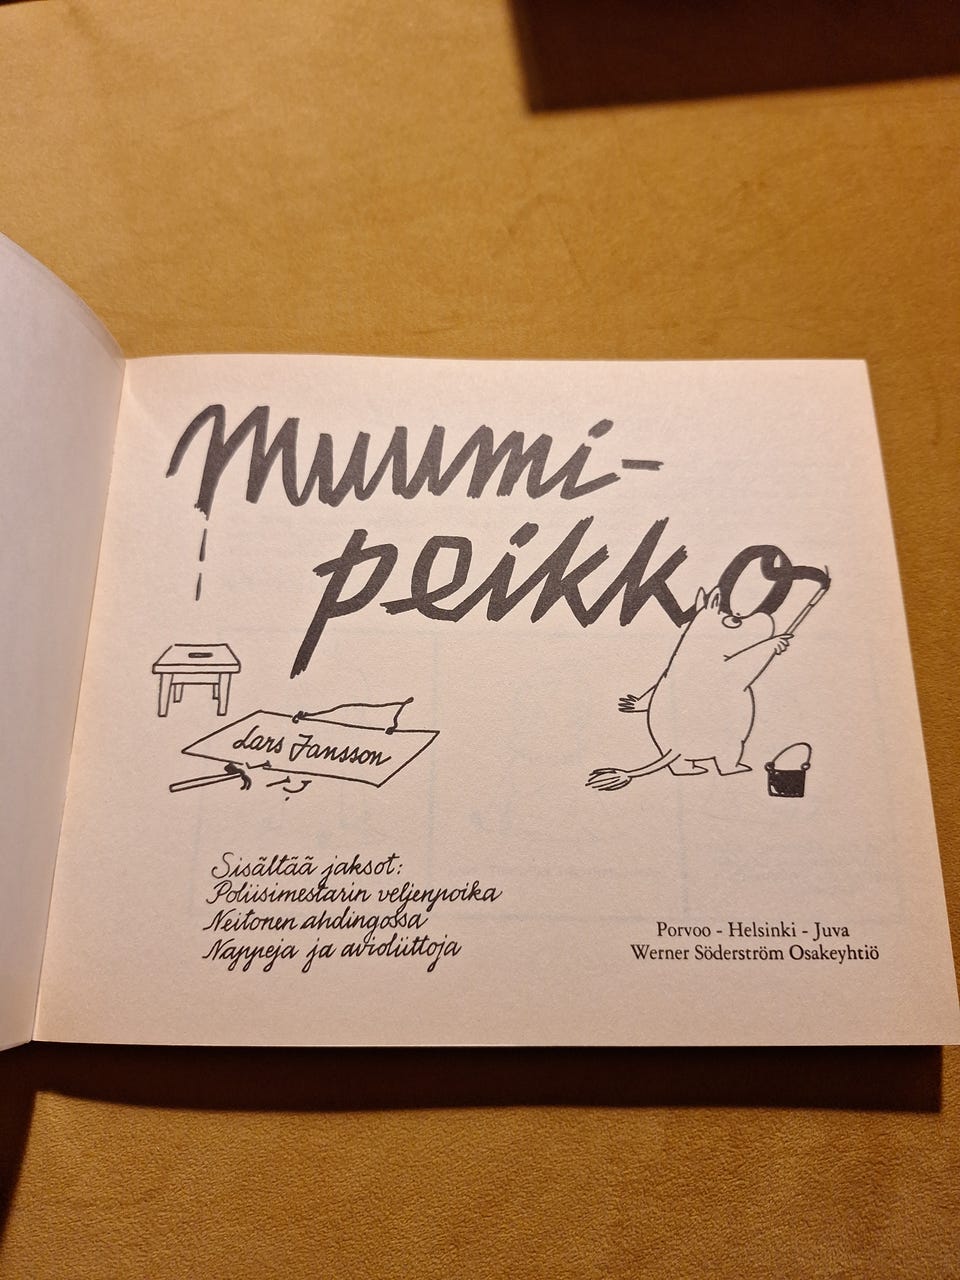 Muumi-
peikko
Lars Jansson
Sisältää jaksot:
Poliisimestarin veljenpoika
Neitonen ahdingossa
Nappeja ja avioliittoja
Porvoo - Helsinki - Juva
Werner Söderström Osakeyhtiö